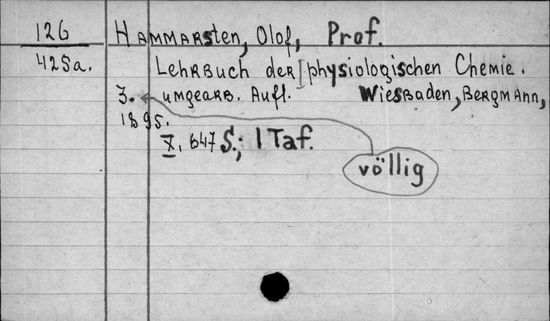 126 Hammarsten, Olof, Prof.
425a. Lehrbuch der physiologischen Chemie.
3. umgearb. Aufl. Wiesbaden, Bergmann,
1895.
X, 647 S.; 1 Taf.
völlig